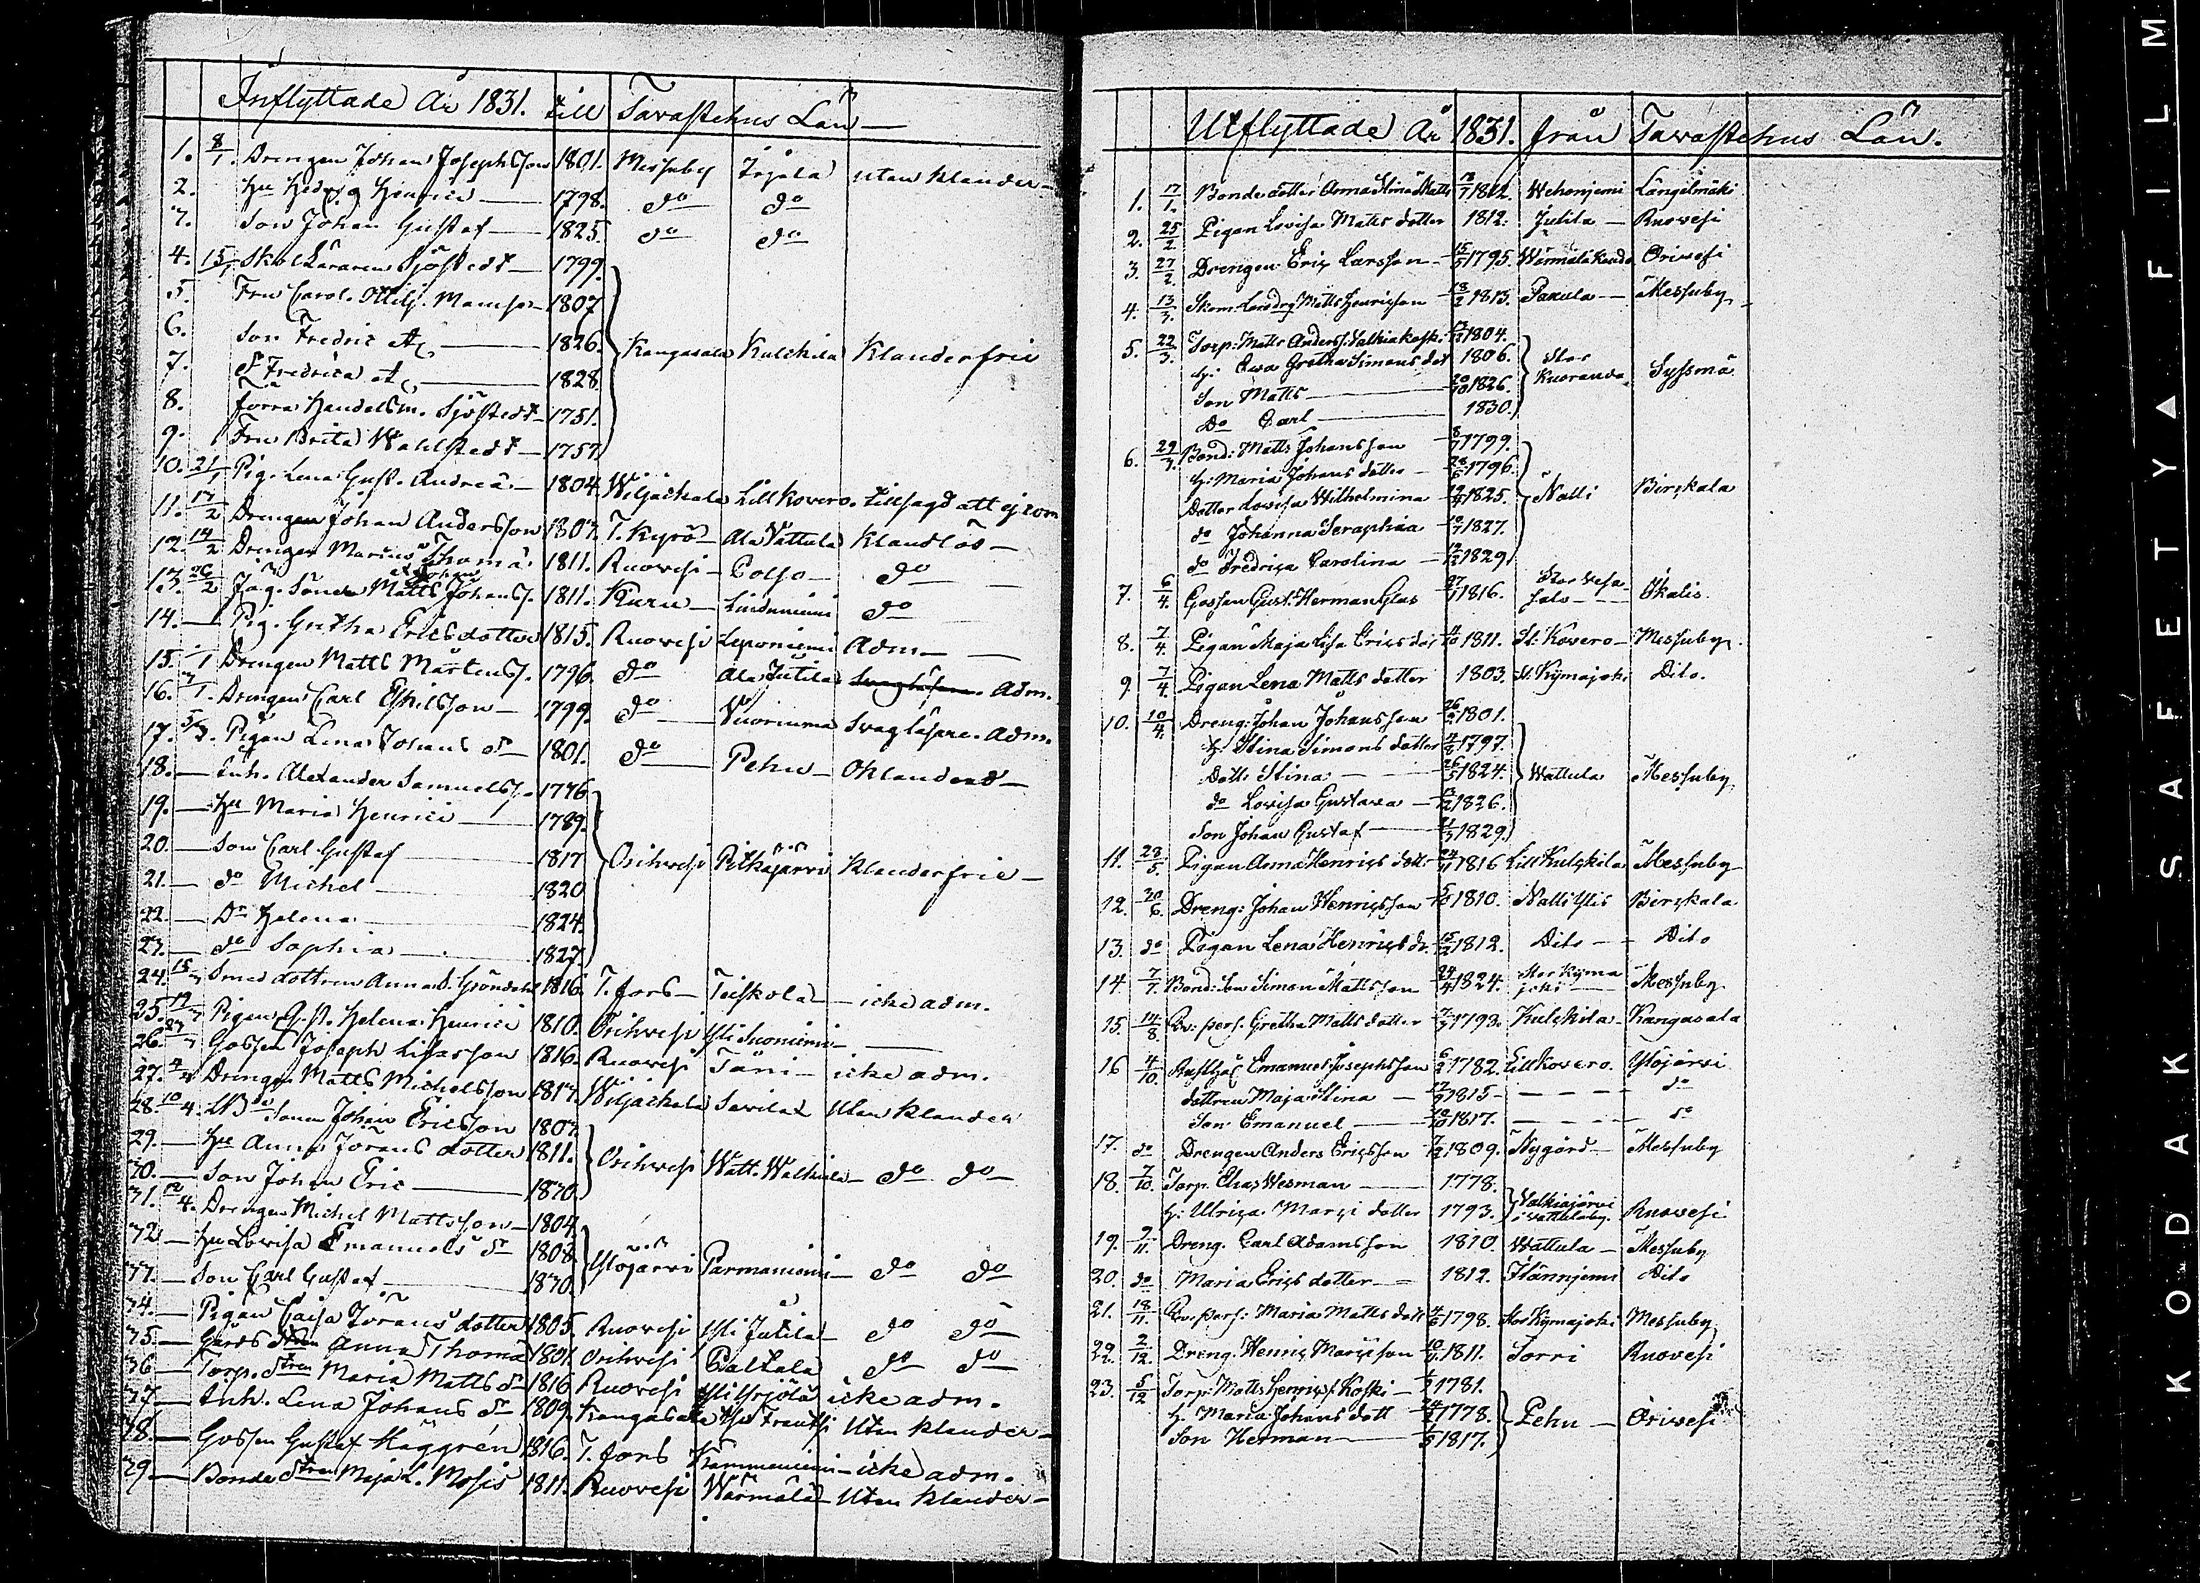 Inflyttade År 1831. till Tavastehus Län
1. 8/1. Drengen Johan Josephsson 1801. Messuby Irjala utan klander
2. Hu Hedvig Henrici 1798. do do
3. Son Johan Gustaf 1825. do do
4. 15/1 Skol Läraren Sjöstedt 1799.
5. Fru Carol. Ottilj. 1807
6. Son Fredric 1826. Kangasala Kulckila Klanderfrie
7. Fredrica 1828
8. förra Handelsm. Sjöstedt 1751.
9. Fru Brita Wahlstedt 1757
10. 21/1 Pig. Lena Gust. Andreä 1804. Wiljackala Lill Kovero. tillsagd att ej
11. 17/2 Drengen Johan Andersson 1807. T. Kyrö Ala Vattula Klandlös
12. 14/2 Drengen Marcus Thomä 1811. Ruovesi do
13. 26/2 Jäg. Sonen Matts Johanss. 1811. Kuru Linduniemi do
14. Pig. Gretha Ericsdotter 1815. Ruovesi Leponiemi Adm
15. Drengen Matts Mårtenss. 1796. do Ala Jutila Svagläsare. Adm.
16. Drengen Carl Eskilsson 1799. do Vuorinma Svagläsare. Adm.
17. 5/3. Pigan Lena Johans dr 1801. do Pehu Oklandrad
18. Inh. Alexander Samuelss. 1776
19. Hu Maria Henrici 1789.
20. Son Carl Gustaf 1817 Orihvesi Pitkäjärvi Klanderfrie
21. do Michel 1820
22. Dr Helena 1824.
23. do Sophia 1827.
24. 15/3 Smed dottren Anna S. Gröndahl 1816. T. fors Teiskola icke adm.
25. Pigan G. st. Helena Henrici 1810. Orihvesi Yli Suoniemi
26. Gossen Joseph Lisasson 1816. Ruovesi Täni icke adm.
27. Drengen Matts Michelsson 1817. Wiljackala Savila Utan klander
28. 10/4. Sonen Johan Ericsson 1807.
29. Hu Anna Jörans dotter 1811. Orihvesi Watt. Walkila do do
30. Son Johan Eric 1830.
31. 12/4. Drengen Michel Mattsson 1804.
32 Hu Lovisa Emanuels dr 1808. Ylöjärvi Parmaniemi do do
33. Son Carl Gustaf 1830.
34. Pigan Caisa Jörans dotter 1805. Ruovesi Yli Jutila do do
35. Gårds dtren Anna Thomä 1801. Orihvesi Paltala do do
36 Torp. dtren Maria Matts dr 1816 Ruovesi Yli Irjölä icke adm.
37. Inh. Lena Johans dr 1809. Kangasala Utan klander
38. Gossen Gustaf Häggrén 1816. T. fors Kämmenniemi icke adm.
39. Bonde dtren Maja L. Mosis 1811. Ruovesi Wärmälä Utan klander
Utflyttade År 1831. från Tavastehus Län.
1. 17/1. Bonde dotter Anna Stina Matts 13/7 1812. Wehonjemi Längelmäki
2. 25/2. Pigan Lovisa Matts dotter 1812. Jutila Ruovesi
3. 27/2. Drengen Eriç Larsson 15/5 1795. Wärmälä Orivesi
4. 13/3. Matts Henriçson 18/2 1813. Paxula Messuby
5. 22/3. Torp: Matts Anderss. Salkiakoski 1804.
h: Ewa Gretha Simons dot 1806. Stor
Son Matts 20/10 1826. Kuoranda Syssmä
Do Carl 1830.
6. 29/3. Bond: Matts Johansson 8/7 1799.
h: Maria Johans dotter 28/6 1796.
Dotter Lovisa Wilhelmina 1825. Natti Birçkala
do Johanna Seraphina 1827.
do Fredriça Carolina 1829
7. 6/4. Gossen Gust. Herman Glas 1816. Stor Vesa salo Ikalis.
8. 7/4. Pigan Maja Lisa Erics dot 4/10 1811. St. Kovero Messuby.
9. 7/4. Pigan Lena Matts dotter 1803. St. Kymajoki Dito.
10. 10/4. Dreng: Johan Johansson 1801.
h: Stina Simons dotter 1797.
Dott. Stina 1824. Wattula Messuby
do Lovisa Gustava 1826.
Son Johan Gustaf 1829.
11. 28/5. Pigan Anna Henriçs dott 1816 Lill Kulçkila Messuby
12. 20/6. Dreng: Johan Henriçsson 1810. Natti Ylis Birçkala
13. do Pigan Lena Henriçs dr. 15/2 1812. Dito Dito
14. 7/7. Bond: Son Simon Mattsson 1824. Stor Kyma joki Messuby
15. 14/8. Qv: pers. Gretha Matts dotter 1793. Kulçkila Kangasala
16 4/10. Rusthål. Emanuel Josephsson 1782. Lill Kovero. Ylöjärvi
dottren Maja Stina 1815 do
Son Emanuel 1817. do
17. do Drengen Anders Eriçsson 1809. Nygård Messuby
18. 7/10. Torp. Elias Wesman 1778.
h: Ulriça Marçi dotter 1793. Valkiajärvi i Vattulaby. Ruovesi
19. 9/11. Dreng. Carl Adamsson 1810. Wattula Messuby
20. do Maria Eriçs dotter 1812. Dito
21. 18/11. Qv. pers: Maria Matts dott 1798. Stor Kymajoki Messuby
22. 2/12. Dreng. Henriç Marçisson 1811. Sorri Ruovesi
23. 5/12 Torp: Matts Henriçss. Koski 1781.
h. Maria Johans dott 1778. Pehu Orivesi
Son Herman 1817.
KODAK SAFETY FILM